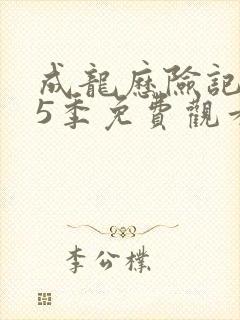 成龍歷險記
5季免費觀
李公樸